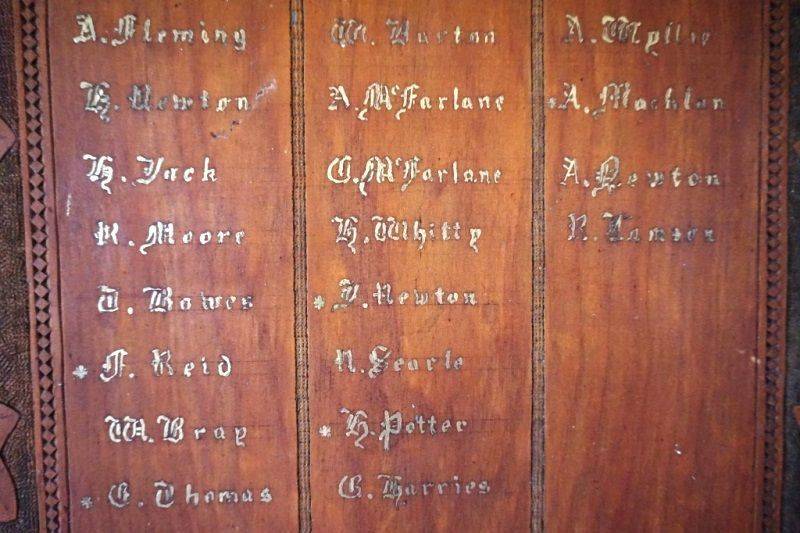 A. Fleming
H. Newton
H. Jack
R. Moore
T. Bowes
* F. Reid
W. Bray
* G. Thomas
W. Burton
A. McFarlane
C. McFarlane
H. Whitty
* J. Newton
N. Searle
* H. Potter
G. Harries
A. Wyllie
* A. Machlan
A. Newton
R. Lamson